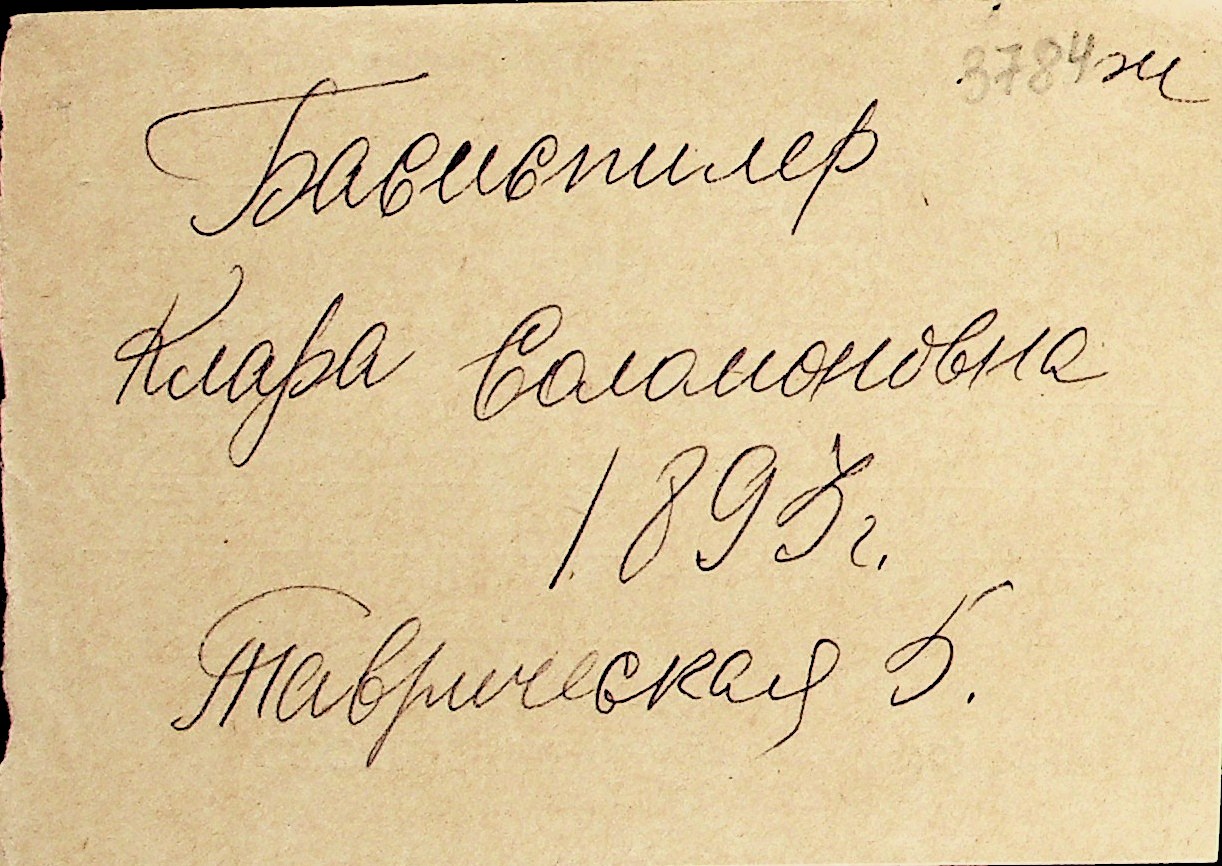 3784 ж
Басиспилер
Клара Соломоновна
1893 г.
Таврическая 5.